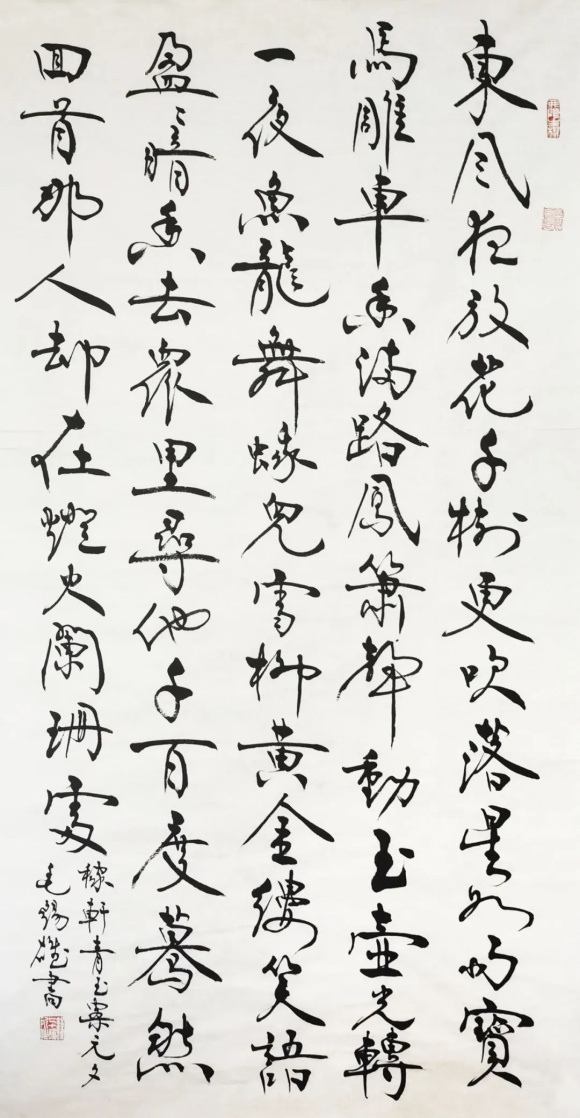 東风夜放花千樹更吹落星如雨寶
馬雕車香滿路鳳簫聲動玉壺光轉
一夜魚龍舞蛾兒雪柳黃金縷笑語
盈〻暗香去衆里尋他千百度驀然
回首那人却在燈火闌珊處
稼軒青玉案元夕
毛錫雄書